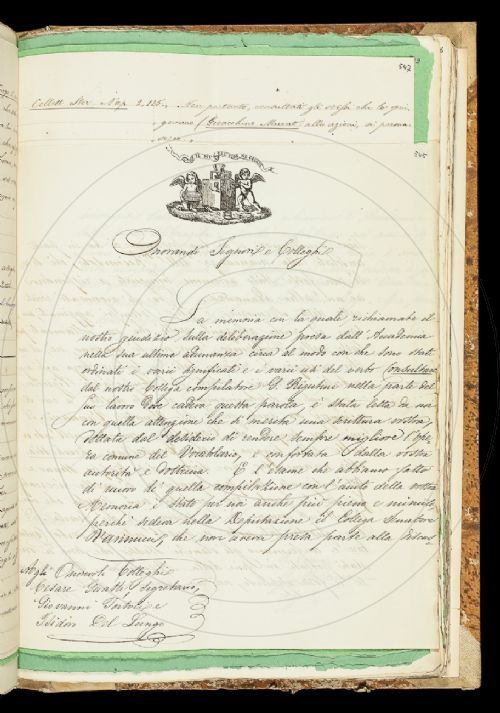 547
Collett. Stor. Nap. 2. 135. – Non pertanto, consultati gli ordini che lo
(Gioacchino Murat) alle azioni, si
345
Onorandi Signori e Colleghi
La memoria con la quale richiamate il
nostro giudizio sulla deliberazione presa dall'Accademia
nella sua ultima adunanza circa al modo con che sono stati
ordinati i varii significati e i varii usi del verbo Consultare
dal nostro Collega compilatore P. Bigutini nella parte del
suo lavoro dove cadeva questa parola, è stata letta da noi
con quella attenzione che si merita una scrittura vostra,
dettata dal desiderio di rendere sempre migliore l'ope-
ra comune del Vocabolario, e confortata dalla vostra
autorità e dottrina. E l'esame che abbiamo fatto
di nuovo di quella compilazione con l'aiuto della vostra
Memoria è stato per noi anche più pieno e minuto,
perchè sedeva nella Deputazione il Collega Senatore
Vannucci, che non aveva presa parte alla
Agli Onorevoli Colleghi
Cesare Guasti Segretario,
Giovanni Tortoli e
Isidoro Del Lungo